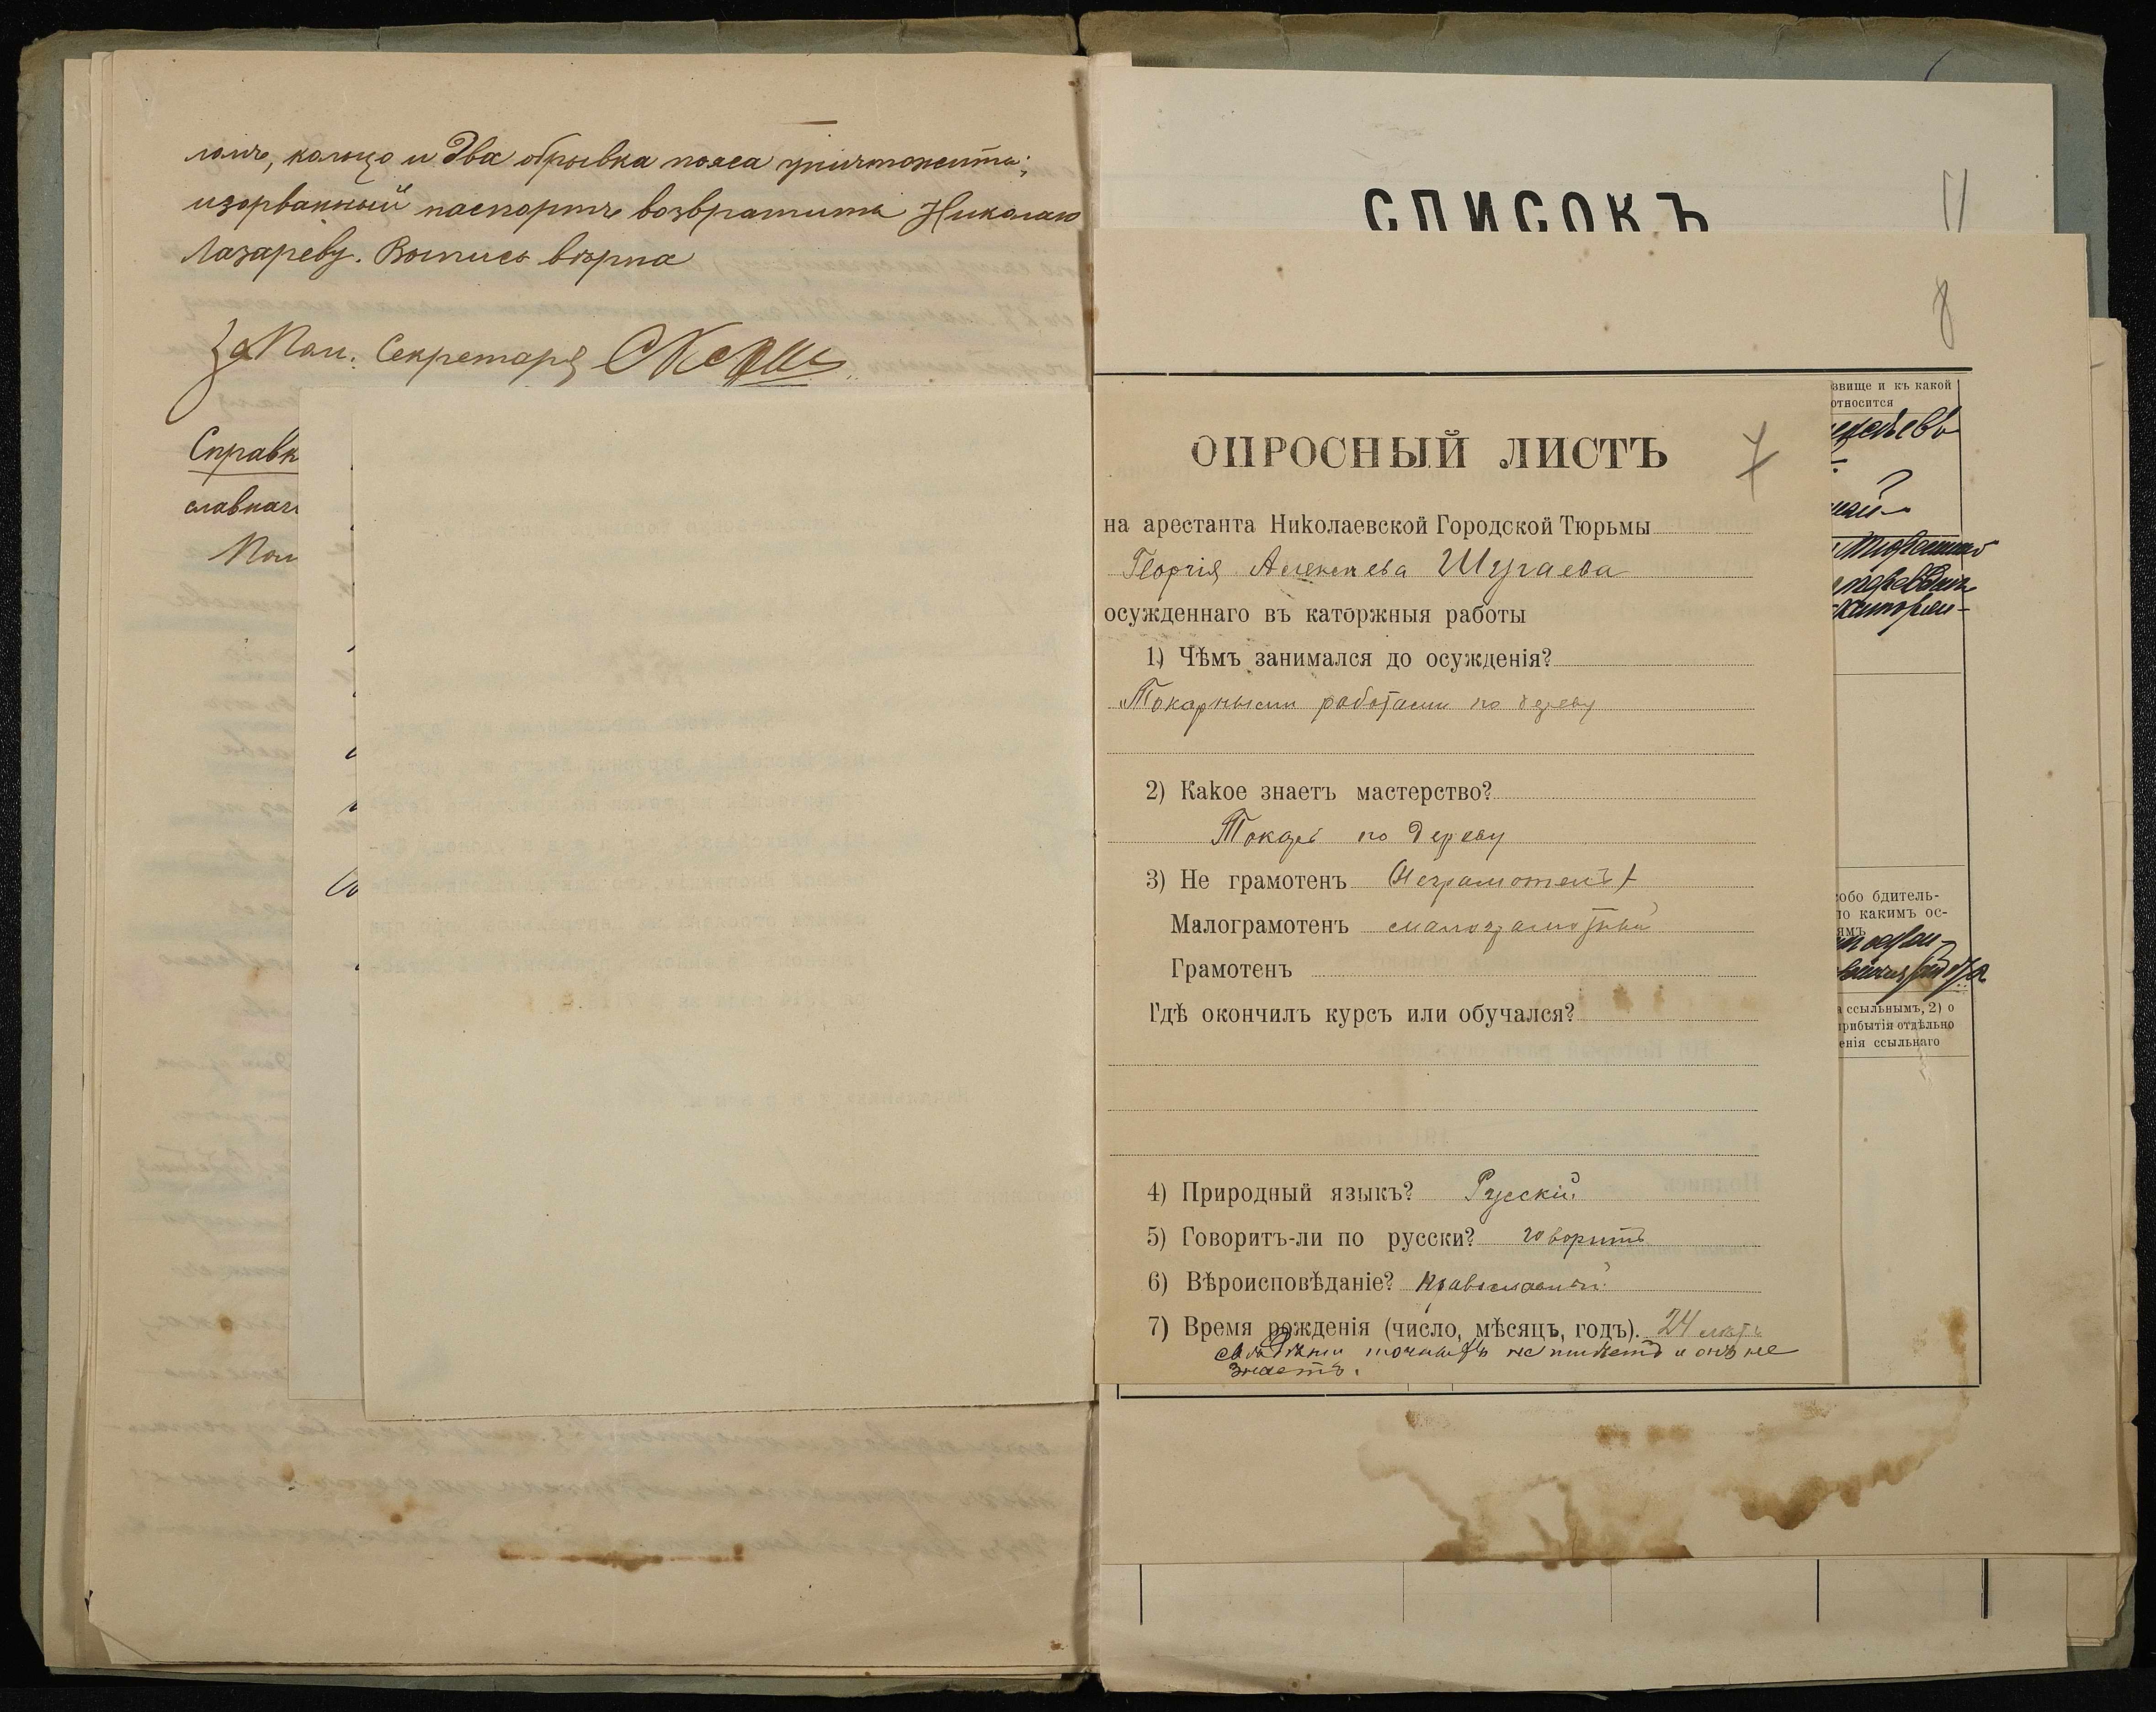 ломъ, кольцо и два обрывка пояса уничтожить;
изорванный паспортъ возвратить Николаю
Лазареву. Выпись вѣрна
За Пом. Секретаря
Справк
славнаг
Пом
СПИСОКЪ
11
8
звище и къ какой
относится
ОПРОСНЫЙ ЛИСТЪ
7
на арестанта Николаевской Городской Тюрьмы
Георгія Алексѣева Шугаева
осужденнаго въ каторжныя работы
1) Чѣмъ занимался до осужденія?
Токарными работами по дереву
2) Какое знаетъ мастерство?
Токарь по дереву
3) Не грамотенъ Неграмотенъ
Малограмотенъ малограмотный
Грамотенъ
Гдѣ окончилъ курсъ или обучался?
4) Природный языкъ? Русскій
5) Говоритъ-ли по русски? говоритъ
6) Вѣроисповѣданіе? православный
7) Время рожденія (число, мѣсяцъ, годъ). 24 лѣтъ
свѣдѣній точныхъ не имѣетъ и онъ не
знаетъ.
собо бдитель-
по какимъ ос-
ямъ
а ссыльнымъ, 2) о
прибытія отдѣльно
енія ссыльнаго